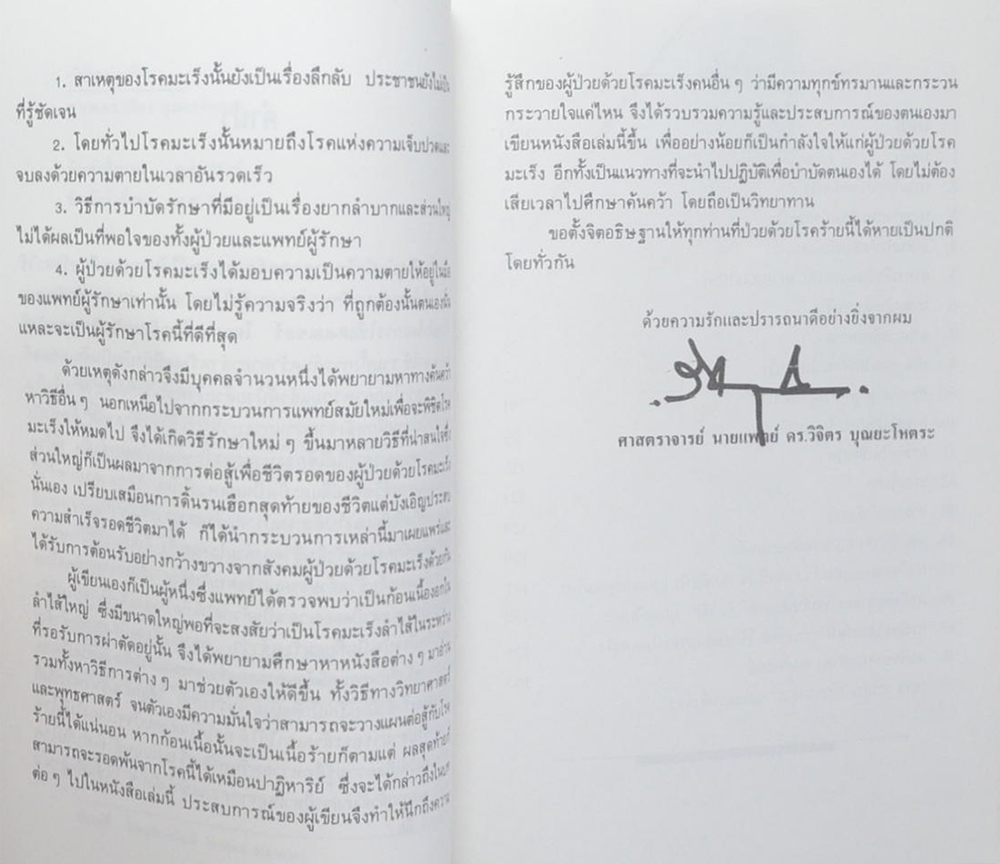 1. สาเหตุของโรคมะเร็งนั้นยังเป็นเรื่องลึกลับ ประชาชนยังไม่เป็น
ที่รู้ชัดเจน
2. โดยทั่วไปโรคมะเร็งนั้นหมายถึงโรคแห่งความเจ็บปวดและ
จบลงด้วยความตายในเวลาอันรวดเร็ว
3. วิธีการบำบัดรักษาที่มีอยู่เป็นเรื่องยากลำบากและส่วนใหญ่
ไม่ได้ผลเป็นที่พอใจของทั้งผู้ป่วยและแพทย์ผู้รักษา
4. ผู้ป่วยด้วยโรคมะเร็งได้มอบความเป็นความตายให้อยู่ในมือ
ของแพทย์ผู้รักษาเท่านั้น โดยไม่รู้ความจริงว่า ที่ถูกต้องนั้นตนเองนั่น
แหละจะเป็นผู้รักษาโรคนี้ที่ดีที่สุด
ด้วยเหตุดังกล่าวจึงมีบุคคลจำนวนหนึ่งได้พยายามหาทางค้นคว้า
หาวิธีอื่น ๆ นอกเหนือไปจากกระบวนการแพทย์สมัยใหม่เพื่อจะพิชิตโรค
มะเร็งให้หมดไป จึงได้เกิดวิธีรักษาใหม่ ๆ ขึ้นมาหลายวิธีที่น่าสนใจซึ่ง
ส่วนใหญ่ก็เป็นผลมาจากการต่อสู้เพื่อชีวิตรอดของผู้ป่วยด้วยโรคมะเร็ง
นั่นเอง เปรียบเสมือนการดิ้นรนเฮือกสุดท้ายของชีวิตแต่บังเอิญประสบ
ความสำเร็จรอดชีวิตมาได้ ก็ได้นำกระบวนการเหล่านี้มาเผยแพร่และ
ได้รับการต้อนรับอย่างกว้างขวางจากสังคมผู้ป่วยด้วยโรคมะเร็งด้วยกัน
ผู้เขียนเองก็เป็นผู้หนึ่งซึ่งแพทย์ได้ตรวจพบว่าเป็นก้อนเนื้องอกใน
ลำไส้ใหญ่ ซึ่งมีขนาดใหญ่พอที่จะสงสัยว่าเป็นโรคมะเร็งลำไส้ในระหว่าง
ที่รอรับการผ่าตัดอยู่นั้น จึงได้พยายามศึกษาหาหนังสือต่าง ๆ มาอ่าน
รวมทั้งหาวิธีการต่าง ๆ มาช่วยตัวเองให้ดีขึ้น ทั้งวิธีทางวิทยาศาสตร์
และพุทธศาสตร์ จนตัวเองมีความมั่นใจว่าสามารถจะวางแผนต่อสู้กับโรค
ร้ายนี้ได้แน่นอน หากก้อนเนื้อนั้นจะเป็นเนื้อร้ายก็ตามแต่ ผลสุดท้ายก็
สามารถจะรอดพ้นจากโรคนี้ได้เหมือนปาฏิหาริย์ ซึ่งจะได้กล่าวถึงในบท
ต่อ ๆ ไปในหนังสือเล่มนี้ ประสบการณ์ของผู้เขียนจึงทำให้นึกถึงความ
รู้สึกของผู้ป่วยด้วยโรคมะเร็งคนอื่น ๆ ว่ามีความทุกข์ทรมานและกระวน
กระวายใจแค่ไหน จึงได้รวบรวมความรู้และประสบการณ์ของตนเองมา
เขียนหนังสือเล่มนี้ขึ้น เพื่ออย่างน้อยก็เป็นกำลังใจให้แก่ผู้ป่วยด้วยโรค
มะเร็ง อีกทั้งเป็นแนวทางที่จะนำไปปฏิบัติเพื่อบำบัดตนเองได้ โดยไม่ต้อง
เสียเวลาไปศึกษาค้นคว้า โดยถือเป็นวิทยาทาน
ขอตั้งจิตอธิษฐานให้ทุกท่านที่ป่วยด้วยโรคร้ายนี้ได้หายเป็นปกติ
โดยทั่วกัน
ด้วยความรักและปรารถนาดีอย่างยิ่งจากผม
ศาสตราจารย์ นายแพทย์ ดร.วิจิตร บุณยะโหตระ